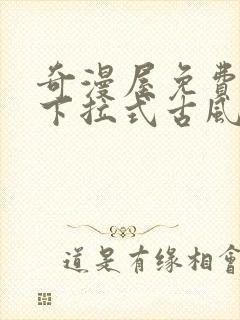 奇漫屋免費
下拉式古風
道是有缘相會